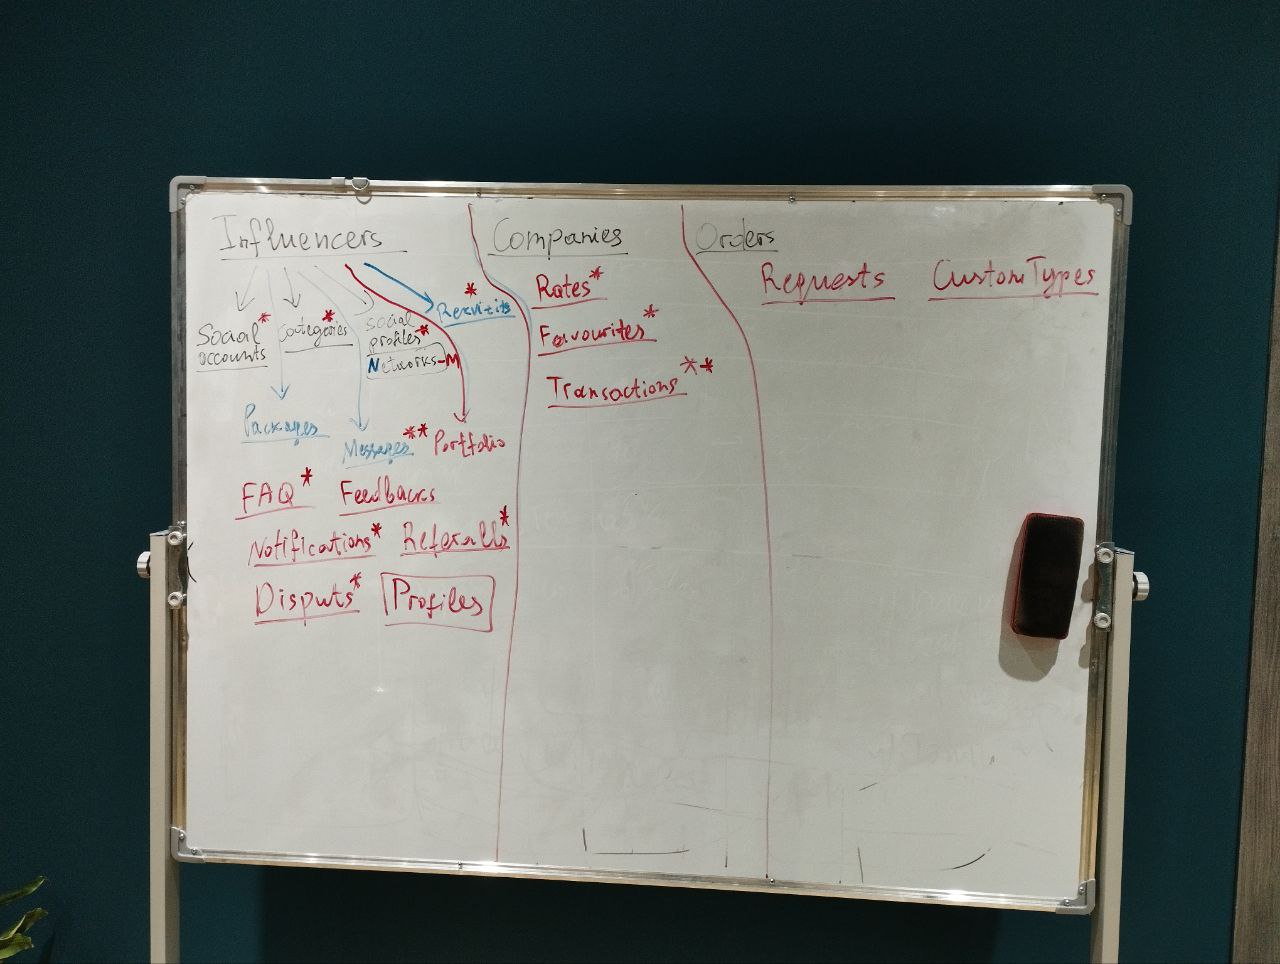 Influencers
Social *
accounts
categories *
social
profiles *
Networks-M
* Rekvizits
Packages
Messages **
Portfolio
FAQ *
Feedbacks
Notifications *
Referalls *
Disputs *
Profiles
Companies
Rates *
Favourites *
Transactions **
Orders
Requests
CustomTypes